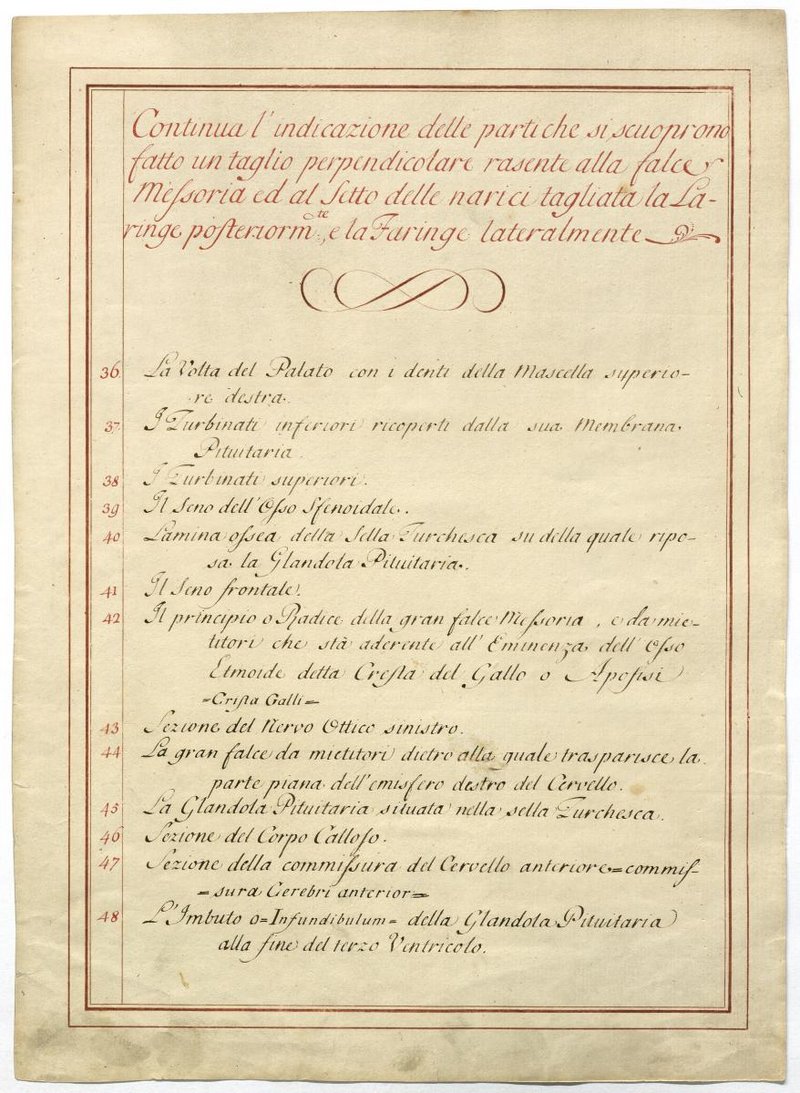 Continua l'indicazione delle parti che si scuoprono
fatto un taglio perpendicolare rasente alla falce
Meſsoria ed al Setto delle narici tagliata la La-
ringe poſteriorm.te, e la Faringe lateralmente
36 La Volta del Palato con i denti della Mascella superio-
re destra.
37 I Turbinati inferiori ricoperti dalla sua Membrana
Pituitaria.
38 I Turbinati superiori.
39 Il Seno dell'Oſso Sfenoidale.
40 Lamina oſsea della Sella Turchesca su della quale ripo-
sa la Glandola Pituitaria.
41 Il Seno frontale.
42 Il principio o Radice della gran falce Meſsoria, e da mie-
titori che stà aderente all'Eminenza dell'Oſso
Etmoide detta Creſta del Gallo o Apofisi
=Criſta Galli=
43 Sezione del Nervo Ottico sinistro.
44 La gran falce da mietitori dietro alla quale trasparisce la
parte piana dell'emisfero destro del Cervello.
45 La Glandola Pituitaria situata nella sella Turchesca.
46 Sezione del Corpo Calloſo.
47 Sezione della commiſsura del Cervello anteriore=commiſ-
=sura Cerebri anterior=
48 L'Imbuto o=Infundibulum= della Glandola Pituitaria
alla fine del terzo Ventricolo.